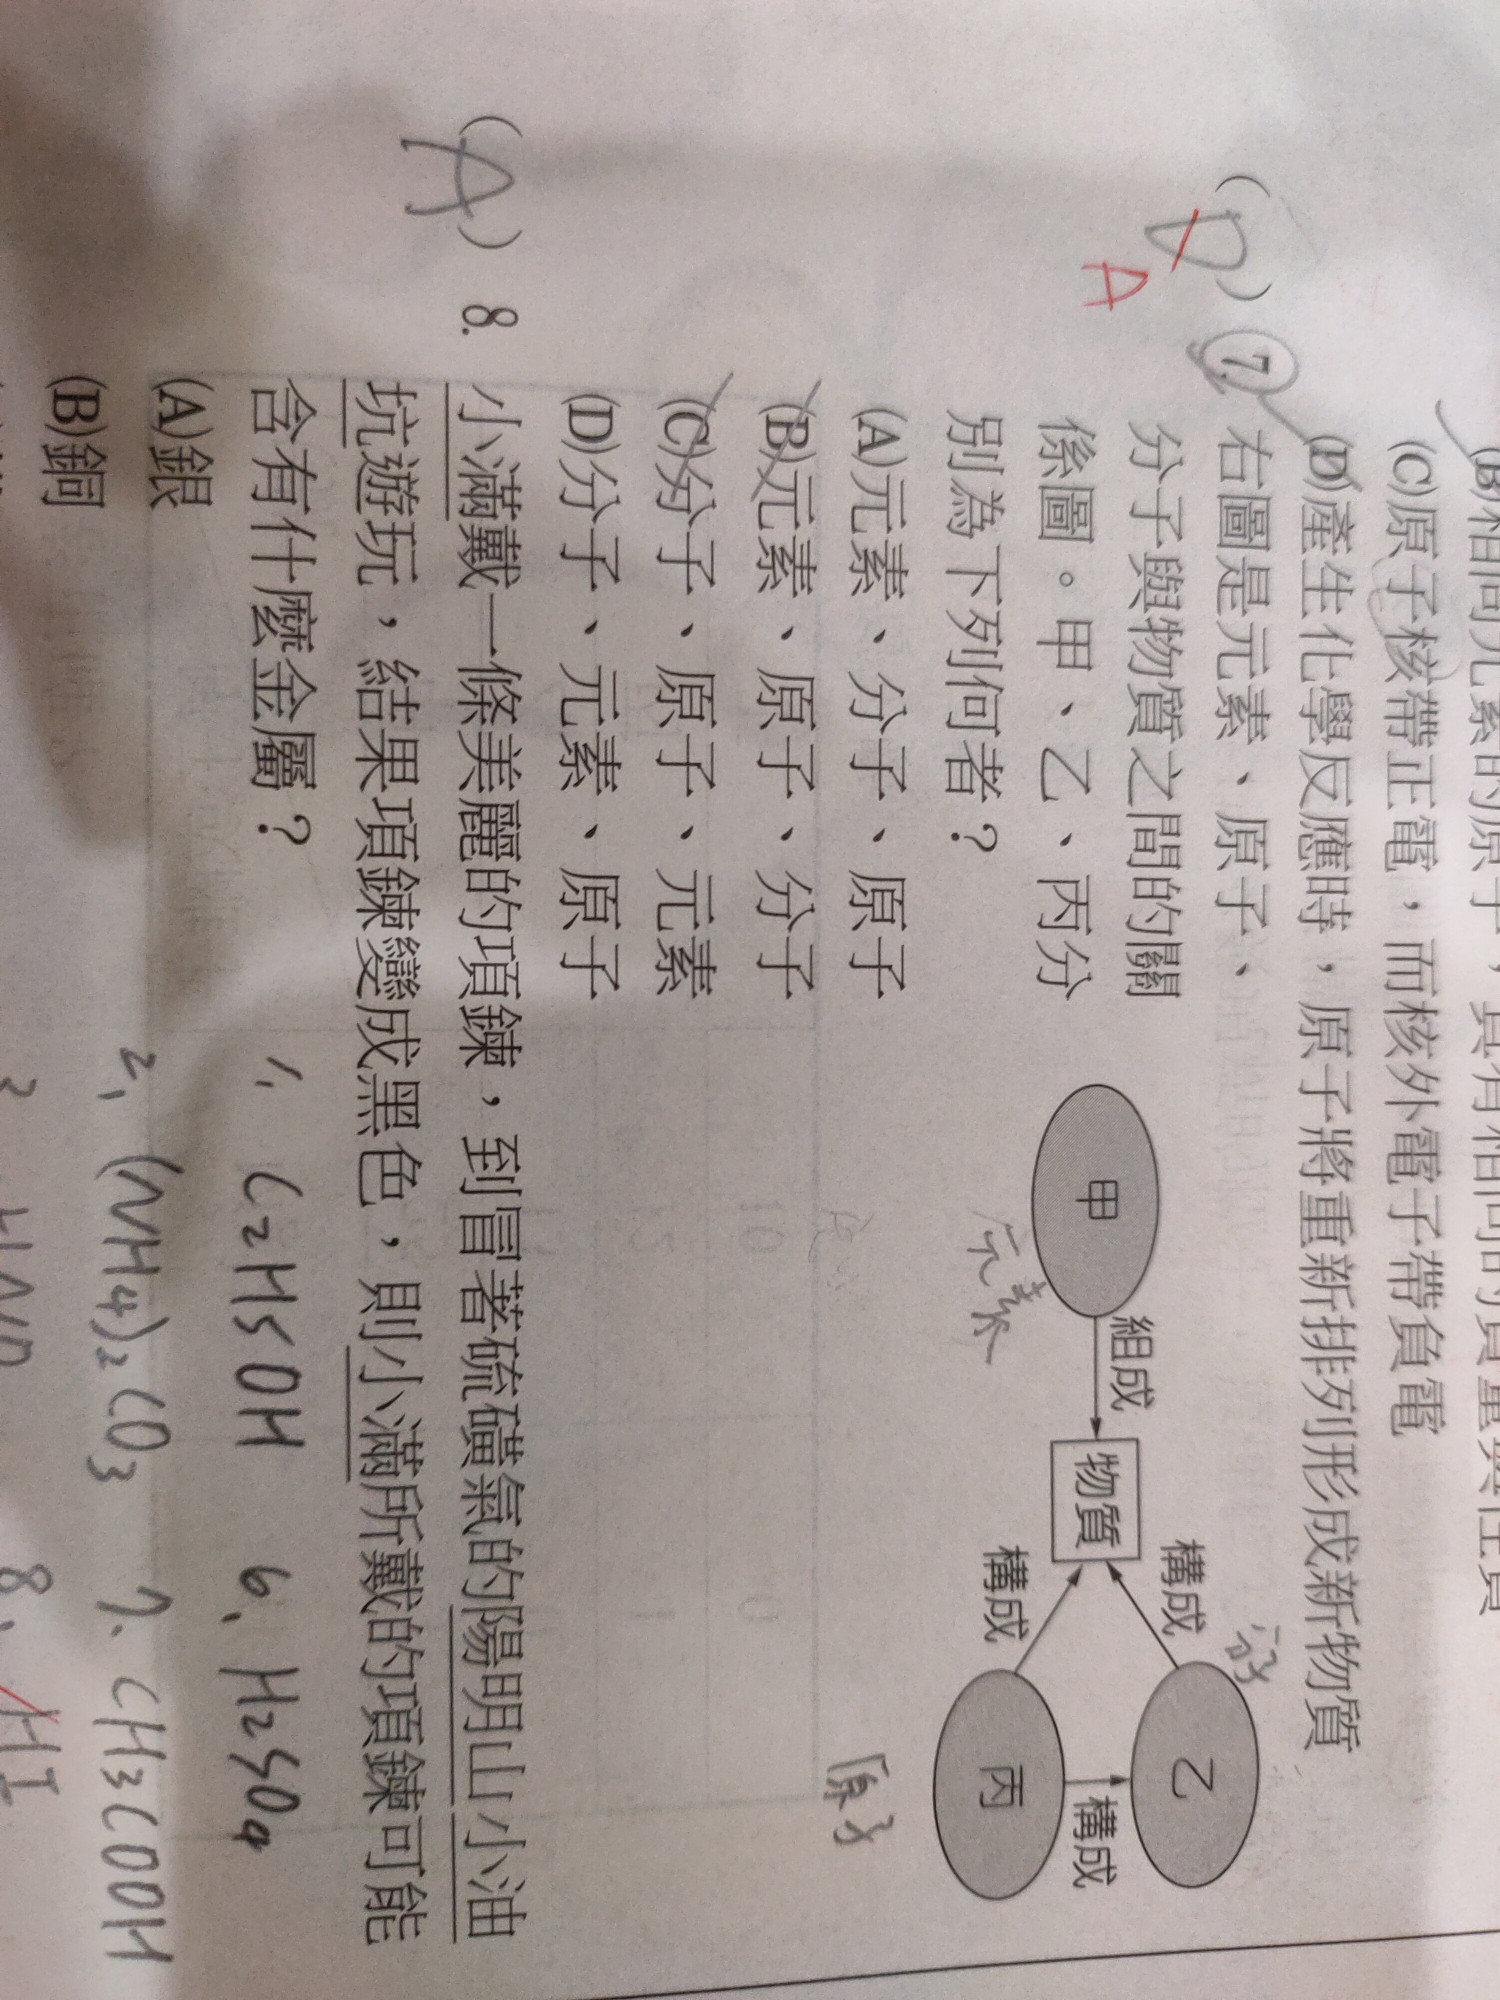 (C)原子核帶正電，而核外電子帶負電
(D)產生化學反應時，原子將重新排列形成新物質
(D) 7. 右圖是元素、原子、
A
分子與物質之間的關
係圖。甲、乙、丙分
別為下列何者？
(A)元素、分子、原子
(B)元素、原子、分子
(C)分子、原子、元素
(D)分子、元素、原子
甲
組成
物質
構成
構成
乙
丙
構成
元素
分子
原子
(A) 8. 小滿戴一條美麗的項鍊，到冒著硫磺氣的陽明山小油
坑遊玩，結果項鍊變成黑色，則小滿所戴的項鍊可能
含有什麼金屬？
(A)銀
(B)銅
1. C2H5OH 6. H2SO4
2. (NH4)2CO3 7. CH3COOH
8. HI